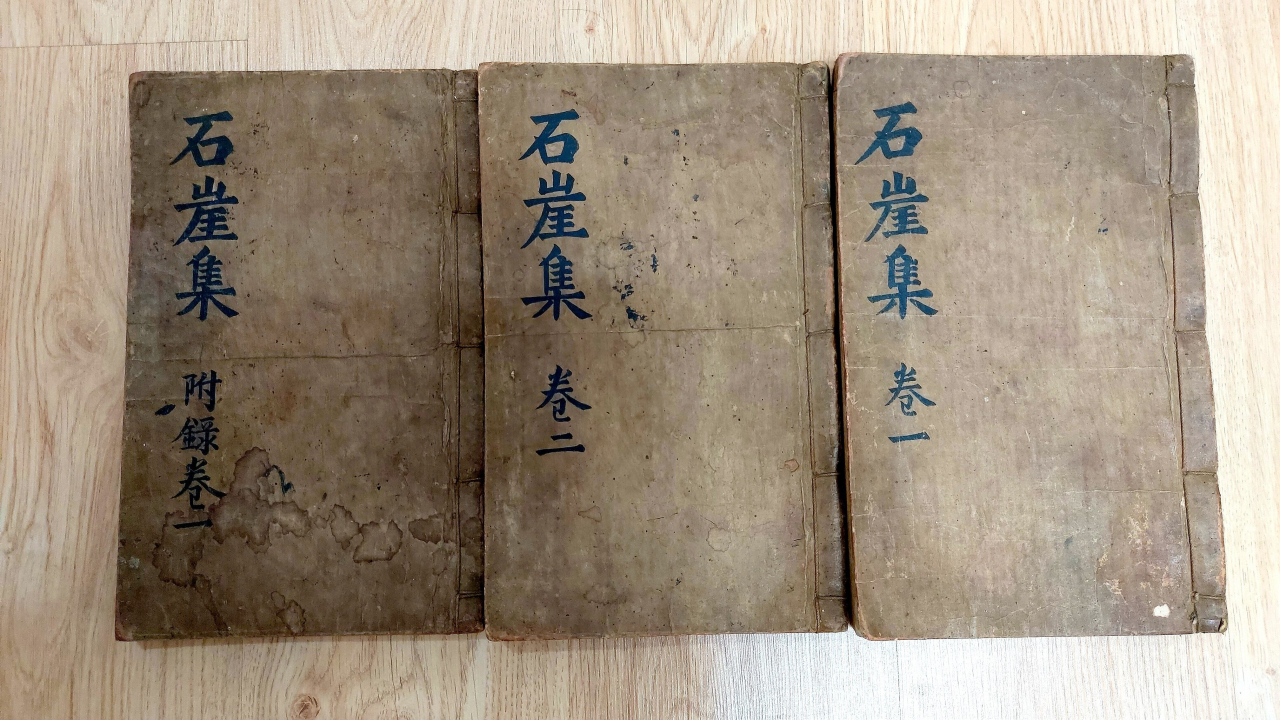 石崖集 卷一
石崖集 卷二
石崖集 附錄卷一